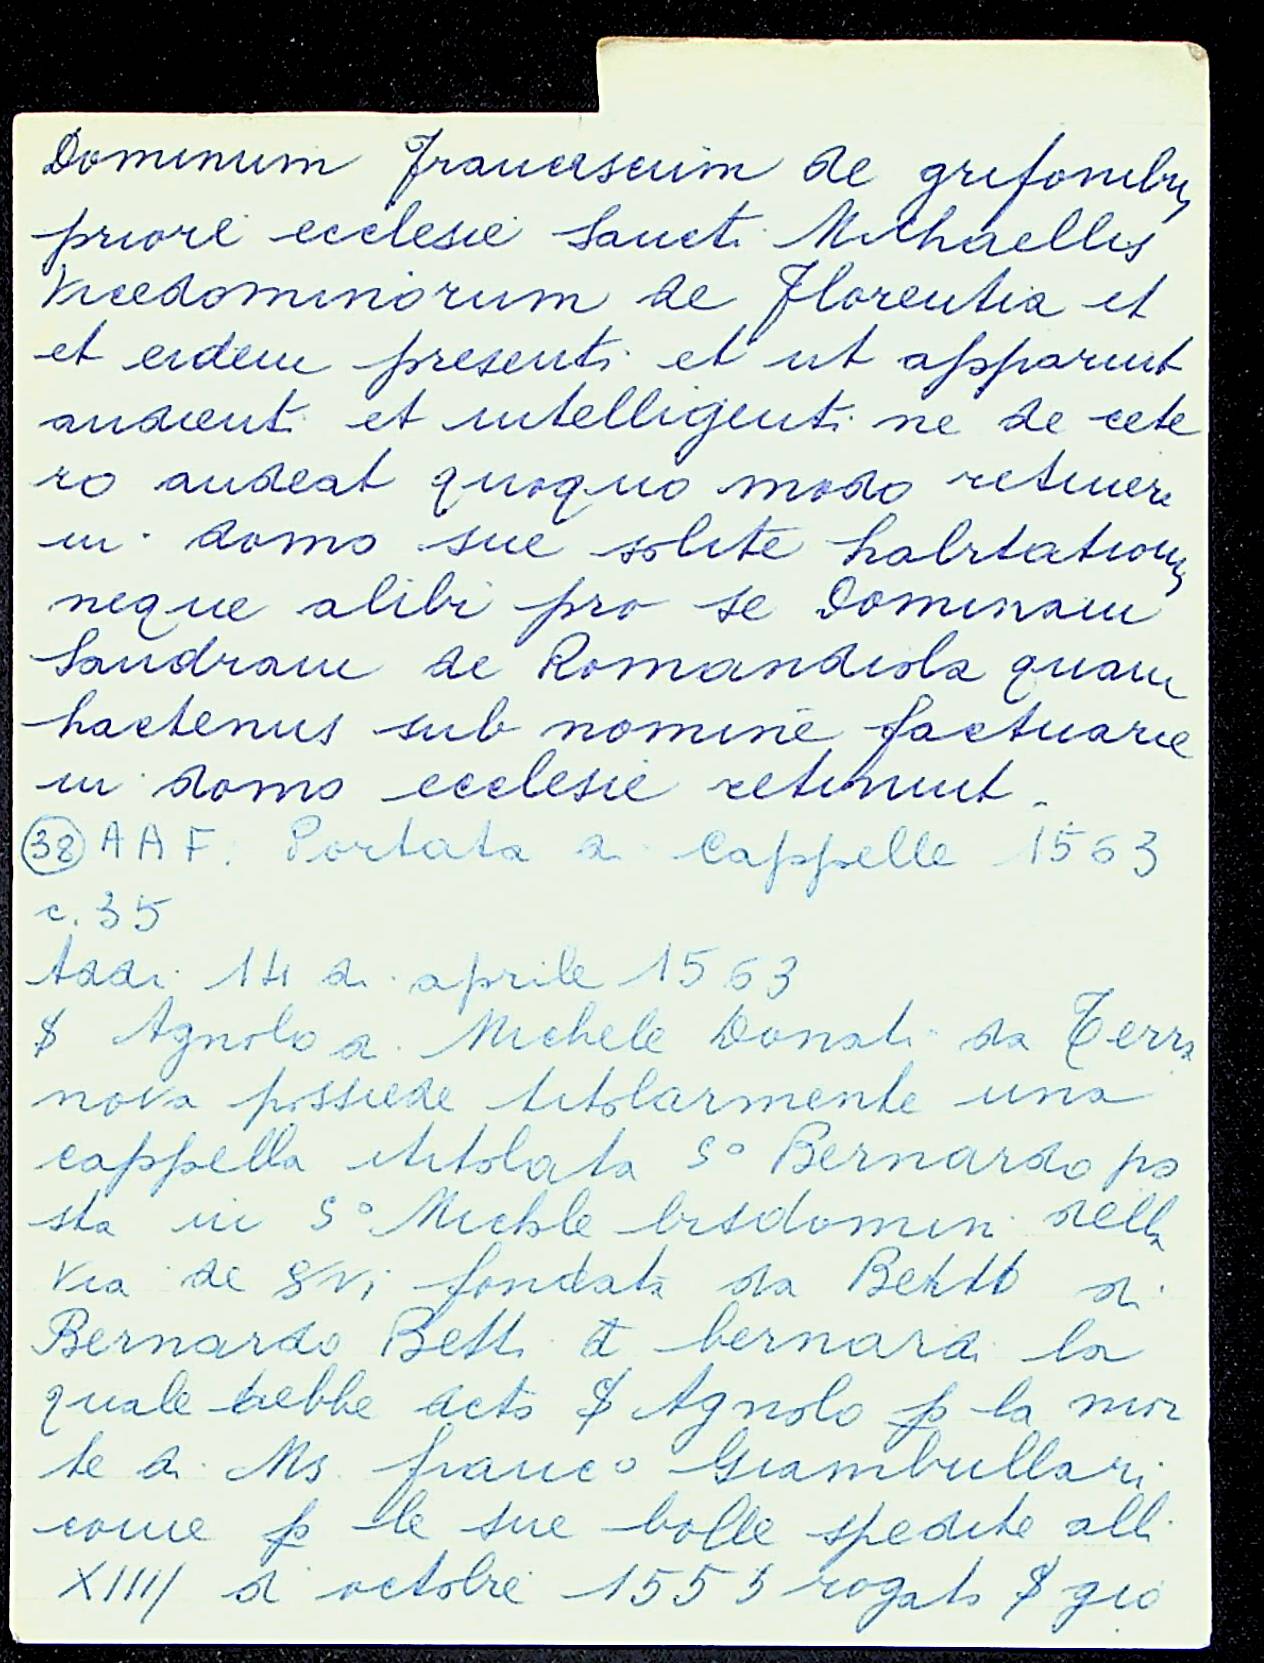 Dominum Franciscum de grifonibus
priore ecclesie Sancti Michaellis
Vicedominorum de Florentia et
et eidem presenti et ut apparuit
audienti et intelligenti ne de cete
ro audeat quoquo modo retinere
in domo sue solite habitationis
neque alibi pro se Dominam
Sandram de Romandiola quam
hactenus sub nomine factuarie
in domo ecclesie retinuit.
(38) A A F. Portata di Cappelle 1563
c. 35
Addi 14 di aprile 1563
$ Agnolo di Michele Donati da Terra
nova possiede titolarmente una
cappella ititolata S° Bernardo po
sta in S° Michele bisdomini della
via de Svi fondata da Betto di
Bernardo Betti di bernardi la
quale debbe dicto $ Agnolo p la mor
te di Ms. franco Giambullari
come p le sue bolle spedite alli
XIIII di octobre 1555 rogato $ gio